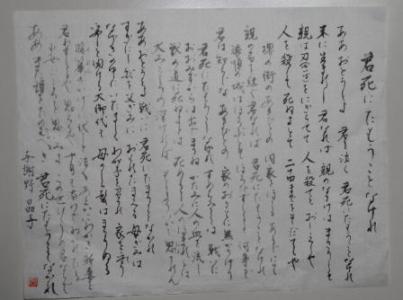 君死にたもうことなかれ
ああおとうとよ 君を泣く 君死にたもうことなかれ
末に生まれし君なれば 親のなさけはまさりしも
親は刃をにぎらせて 人を殺せとおしえしや
人を殺して死ねよとて 二十四までをそだてしや
堺の街のあきびとの 旧家をほこるあるじにて
親の名を継ぐ君なれば 君死にたもうことなかれ
旅順の城はほろぶとも ほろびずとても 何事ぞ
君は知らじな あきびとの家のおきてに無かりけり
君死にたもうことなかれ すめらみことは 戦いに
おおみずからは出でまさね かたみに人の血を流し
獣の道に死ねよとは 死ぬるを人のほまれとは
大みこころの深ければ もとよりいかで思されん
ああおとうとよ 戦いに 君死にたもうことなかれ
すぎにし秋を父ぎみに おくれたまえる母ぎみは
なげきの中にいたましく わが子を召され 家を守り
安しと聞ける大御代も 母のしら髪はまさりぬる
暖簾のかげに伏して泣く あえかにわかき新妻を
君わするるや 思えるや 十月も添わでわかれたる
少女ごころを思いみよ この世ひとりの君ならで
ああまた誰をたのむべき 君死にたもうことなかれ
与謝野晶子